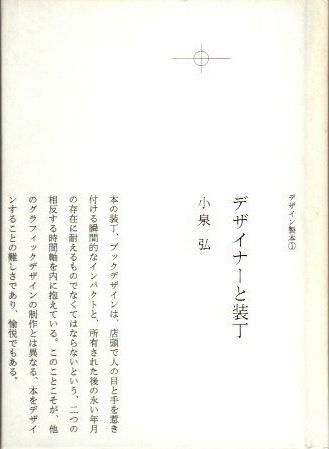 デザイン製本①
デザイナーと装丁
小泉 弘
本の装丁、ブックデザインは、店頭で人の目と手を惹き
付ける瞬間的なインパクトと、所有された後の永い年月
の存在に耐えるものでなくてはならないという、二つの
相反する時間軸を内に抱えている。このことこそが、他
のグラフィックデザインの制作とは異なる、本をデザイ
ンすることの難しさであり、愉悦でもある。